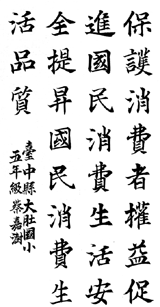 保護消費者權益促
進國民消費生活安
全提昇國民消費生
活品質
臺中縣大肚國小
五年級蔡嘉澍